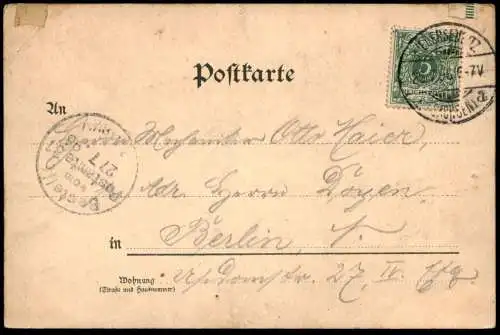 Postkarte
An
Herrn Mechaniker Otto Haier
Adr. Herrn Doyen
in Berlin, N.
Wohnung
(Straße und Hausnummer)
Usedomstr. 27 IV.
5
Bestellt
vom
Postamte
27 7
6-7V
(SACHSEN)